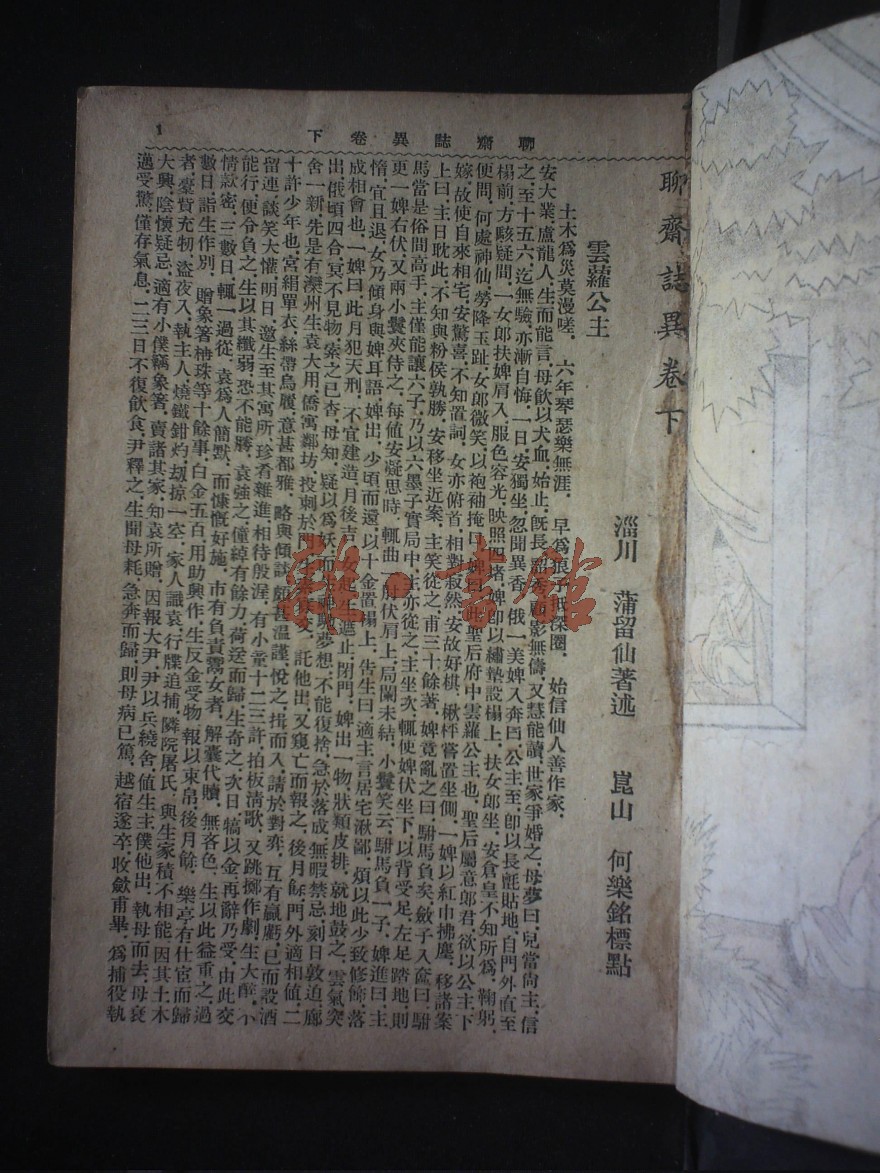 聊齋誌異卷下
1
聊齋誌異卷下
淄川 蒲留仙著述 崑山 何樂銘標點
雲蘿公主
土木爲災莫漫嗟． 六年琴瑟樂無涯． 早爲狼子 深圈． 始信仙人善作家．
安大業．盧龍人．生而能言．母飲以犬血．始止．旣長．韶秀．顧影無儔．又慧能讀．世家爭婚之．母夢曰．兒當尙主．信
之至十五六．迄無驗．亦漸自悔．一日．安獨坐．忽聞異香．俄一美婢入．奔曰．公主至．卽以長氈貼地．自門外直至
榻前．方駭疑間．一女郎扶婢肩入．服色容光．映照四堵．婢卽以繡墊設榻上．扶女郎坐．安倉皇不知所爲．鞠躬．
便問．何處神仙．勞降玉趾．女郎微笑．以袍袖掩口．婢曰．此聖后府中雲蘿公主也．聖后屬意郎君．欲以公主下
嫁．故使自來相宅．安驚喜．不知置詞．女亦俯首．相對寂然．安故好棋．楸枰嘗置坐側．一婢以紅巾拂塵．移諸案
上曰．主日耽此．不知與粉侯孰勝．安移坐近案．主笑從之．甫三十餘著．婢竟亂之曰．駙馬負矣．斂子入奩曰．駙
馬當是俗間高手．主僅能讓六子．乃以六黑子實局中．主亦從之．主坐次．輒使婢伏坐下．以背受足．左足踏地．則
更一婢右伏．又兩小鬟夾侍之．每値安凝思時．輒曲一肘伏肩上．局闌未結．小鬟笑云．駙馬負一子．婢進曰．主
惰．宜且退．女乃傾身與婢耳語．婢出．少頃而還．以千金置榻上．告生曰．適主言居宅湫鄙．煩以此少致修飾．落
成相會也．一婢曰．此月犯天刑．不宜建造．月後吉．女起．生遮止．閉門．婢出一物．狀類皮排．就地鼓之．雲氣突
出．俄頃四合．冥不見物．索之已杳．母知．疑以爲妖．而生神馳夢想．不能復捨．急於落成．無暇禁忌．刻日敦迫．廊
舍一新．先是有灤州生袁大用．僑寓鄰坊．投刺於門．生 託他出．又窺亡而報之．後月餘．門外適相値．二
十許少年也．宮絹單衣．絲帶烏履．意甚都雅．略與傾談．頗甚溫謹．悅之．揖而入．請於對弈．互有贏虧．已而設酒
留連．談笑大懽．明日．邀生至其寓所．珍肴雜進．相待殷渥．有小童十二三許．拍板清歌．又跳擲作劇．生大醉．不
能行．便令負之．生以其纖弱．恐不能勝．袁強之．僮綽有餘力．荷送而歸．生奇之．次日．犒以金．再辭乃受．由此交
情款密．三數日．輒一過從．袁爲人簡默．而慷慨好施．市有負責鬻女者．解囊代贖．無吝色．生以此益重之．過
數日．詣生作別．贈象箸楠珠等十餘事．白金五百．用助興作．生反金受物．報以束帛．後月餘．樂亭有仕宦而歸
者．橐貲充牣．盜夜入．執主人．燒鐵鉗灼．刼掠一空．家人識袁．行牒追捕．隣院屠氏．與生家積不相能．因其土木
大興．陰懷疑忌．適有小僕竊象箸．賣諸其家．知袁所贈．因報大尹．尹以兵繞舍．値生主僕他出．執母而去．母衰
邁受驚．僅存氣息．二三日不復飲食．尹釋之．生聞母耗．急奔而歸．則母病已篤．越宿遂卒．收斂甫畢．爲捕役執
雜·書館